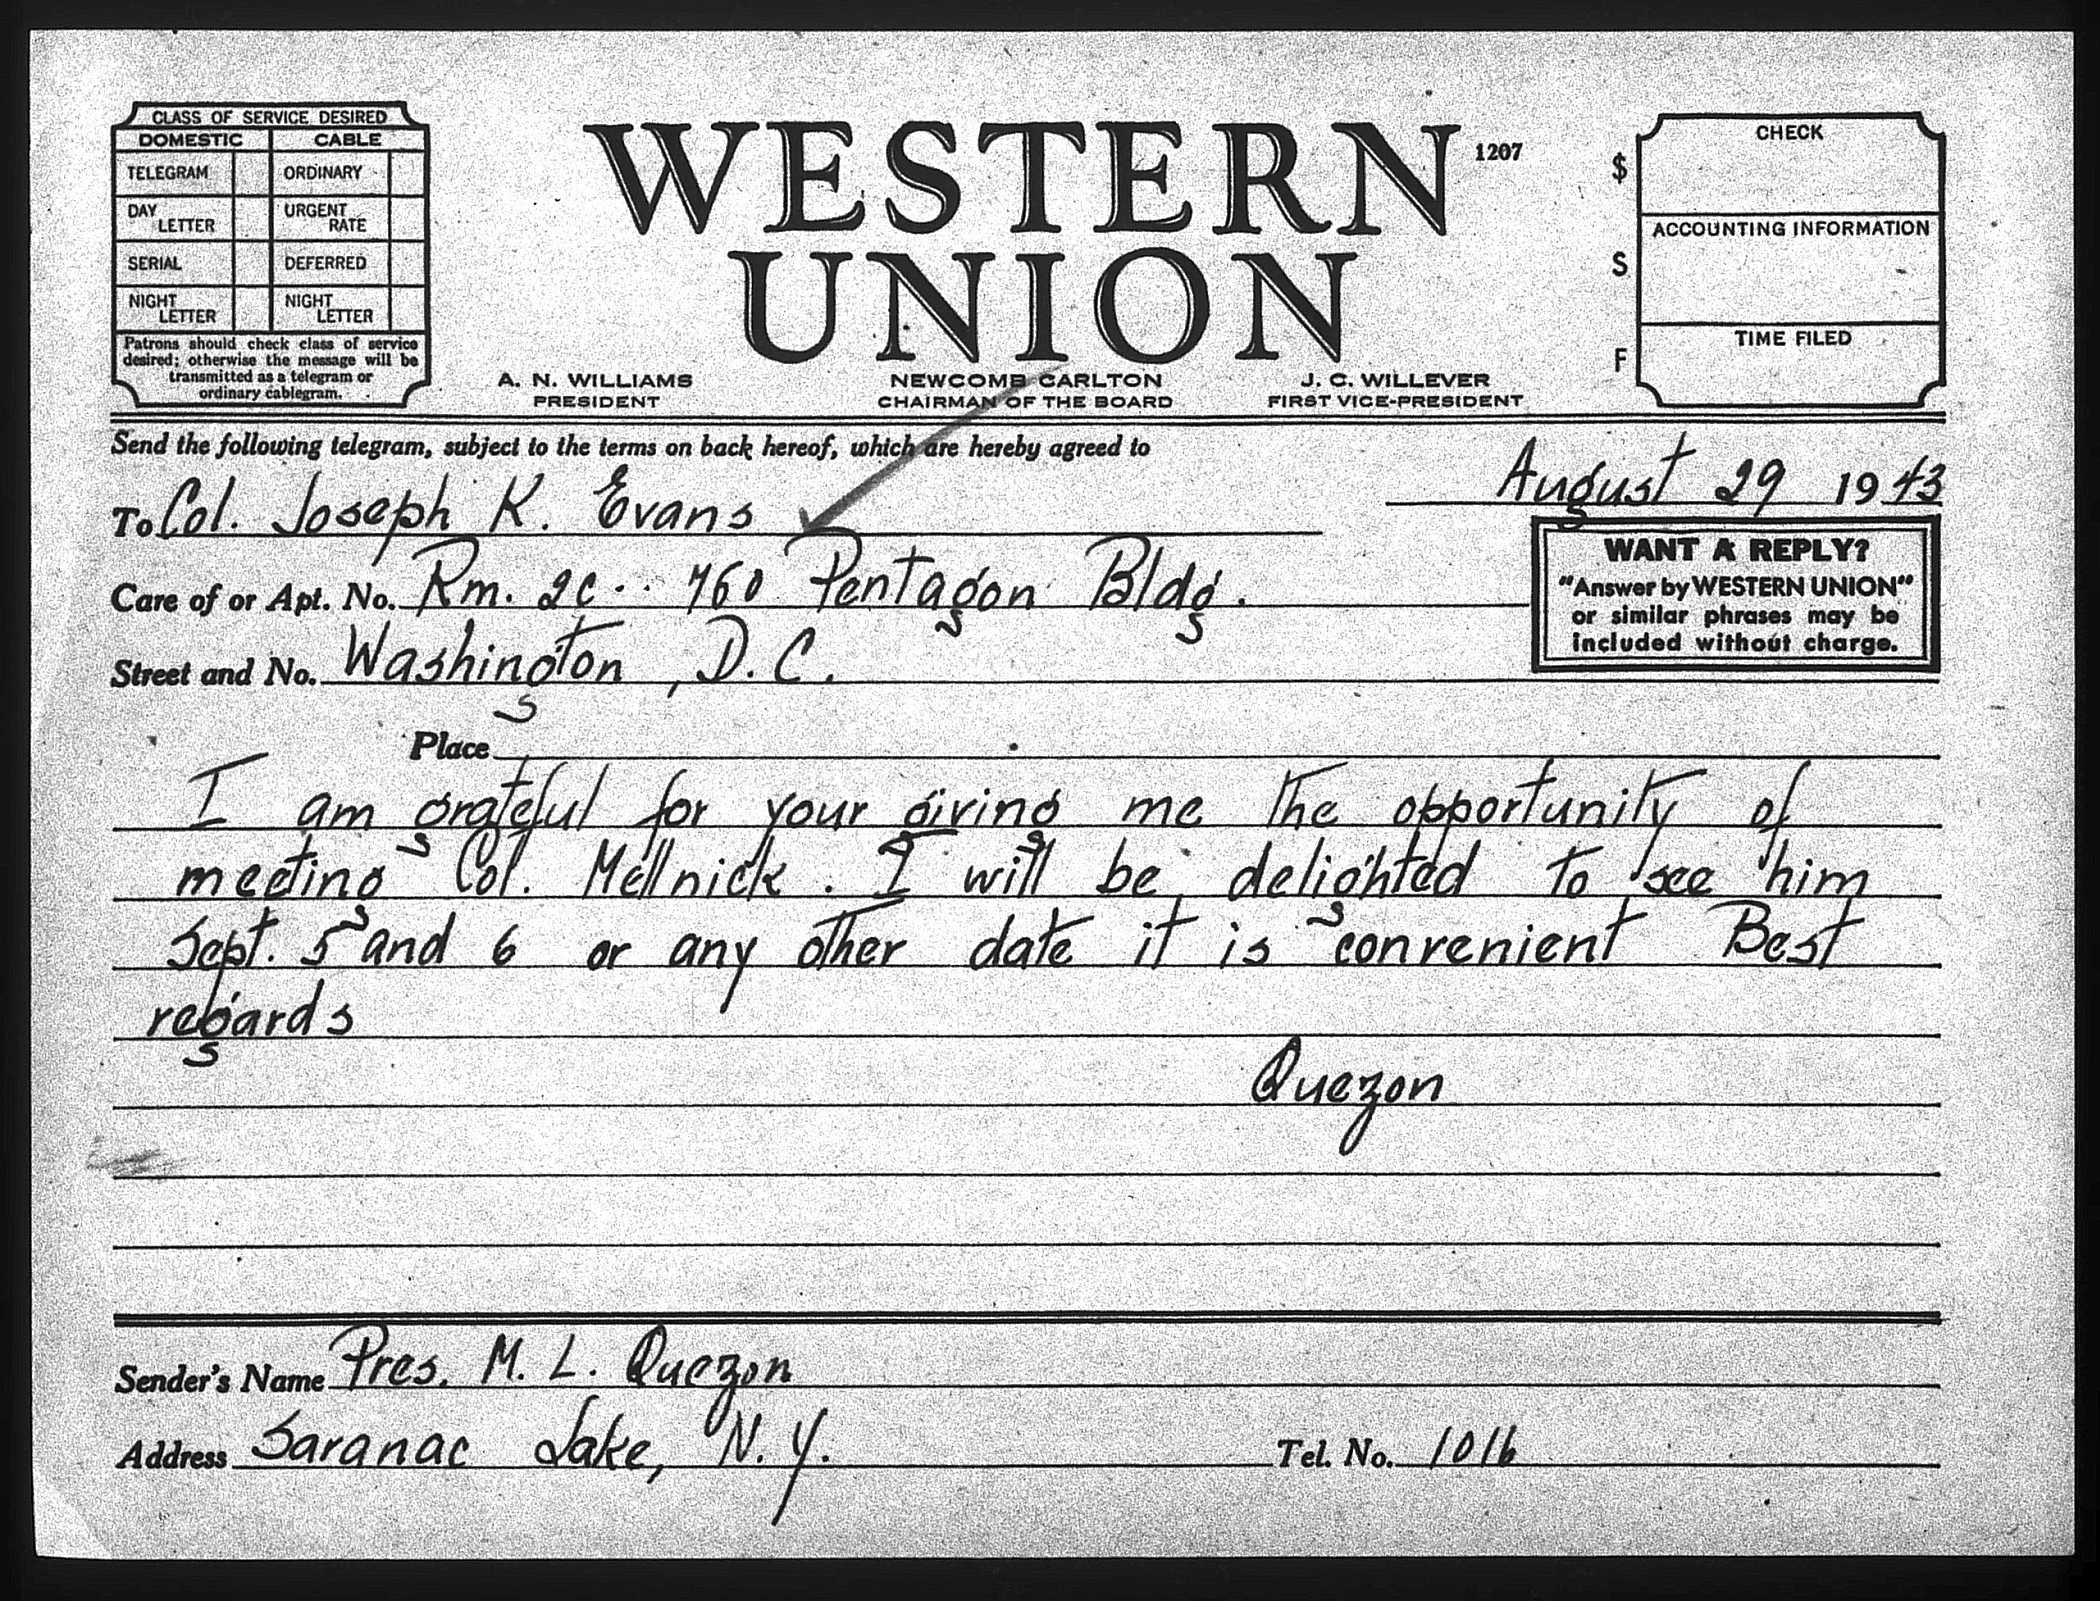 CLASS OF SERVICE DESIRED
DOMESTIC CABLE
TELEGRAM ORDINARY
DAY LETTER URGENT RATE
SERIAL DEFERRED
NIGHT LETTER NIGHT LETTER
Patrons should check class of service
desired; otherwise the message will be
transmitted as a telegram or
ordinary cablegram.
WESTERN
UNION
1207
A. N. WILLIAMS
PRESIDENT
NEWCOMB CARLTON
CHAIRMAN OF THE BOARD
J. C. WILLEVER
FIRST VICE-PRESIDENT
$
S
F
CHECK
ACCOUNTING INFORMATION
TIME FILED
Send the following telegram, subject to the terms on back hereof, which are hereby agreed to
August 29 1943
To Col. Joseph K. Evans
Care of or Apt. No. Rm. 2C-- 760 Pentagon Bldg.
Street and No. Washington, D.C.
WANT A REPLY?
"Answer by WESTERN UNION"
or similar phrases may be
included without charge.
Place
I am grateful for your giving me the opportunity of
meeting Col. Mellnick. I will be delighted to see him
Sept. 5 and 6 or any other date it is convenient Best
regards
Quezon
Sender's Name Pres. M. L. Quezon
Address Saranac Lake, N. Y. Tel. No. 1016